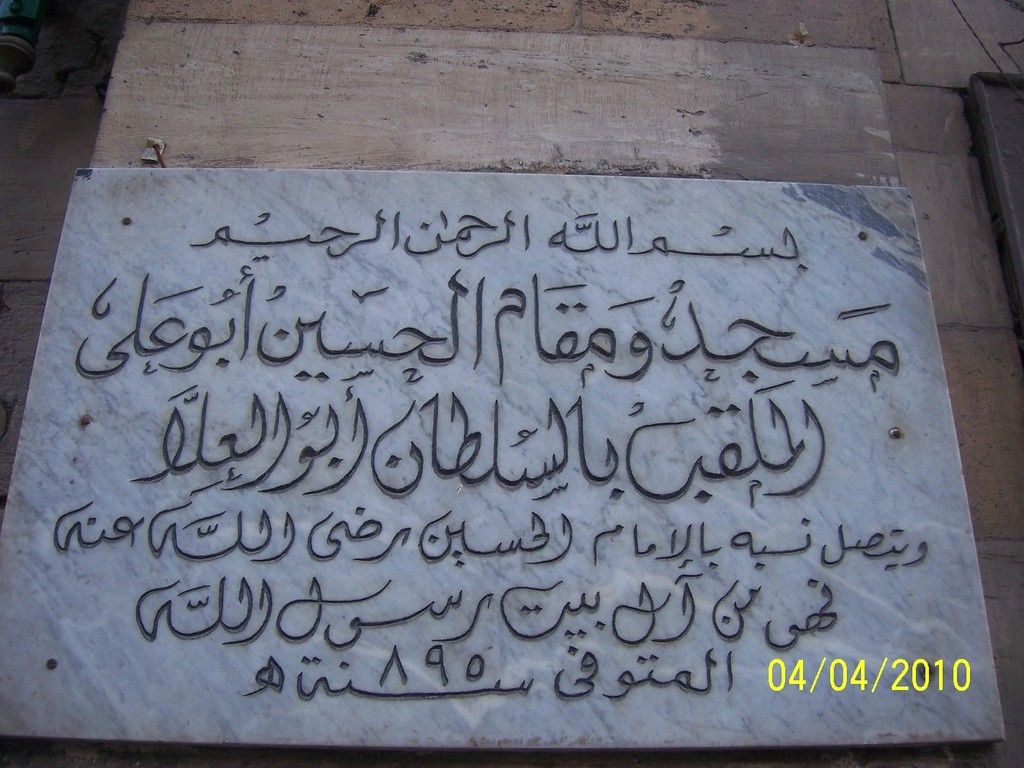 بسم الله الرحمن الرحيم
مسجد ومقام الحسين أبو على
الملقب بالسلطان أبو العلا
ويتصل نسبه بالإمام الحسين رضى الله عنه
فهى من آل بيت رسول الله
المتوفى سنة ٨٩٥ هـ
04/04/2010